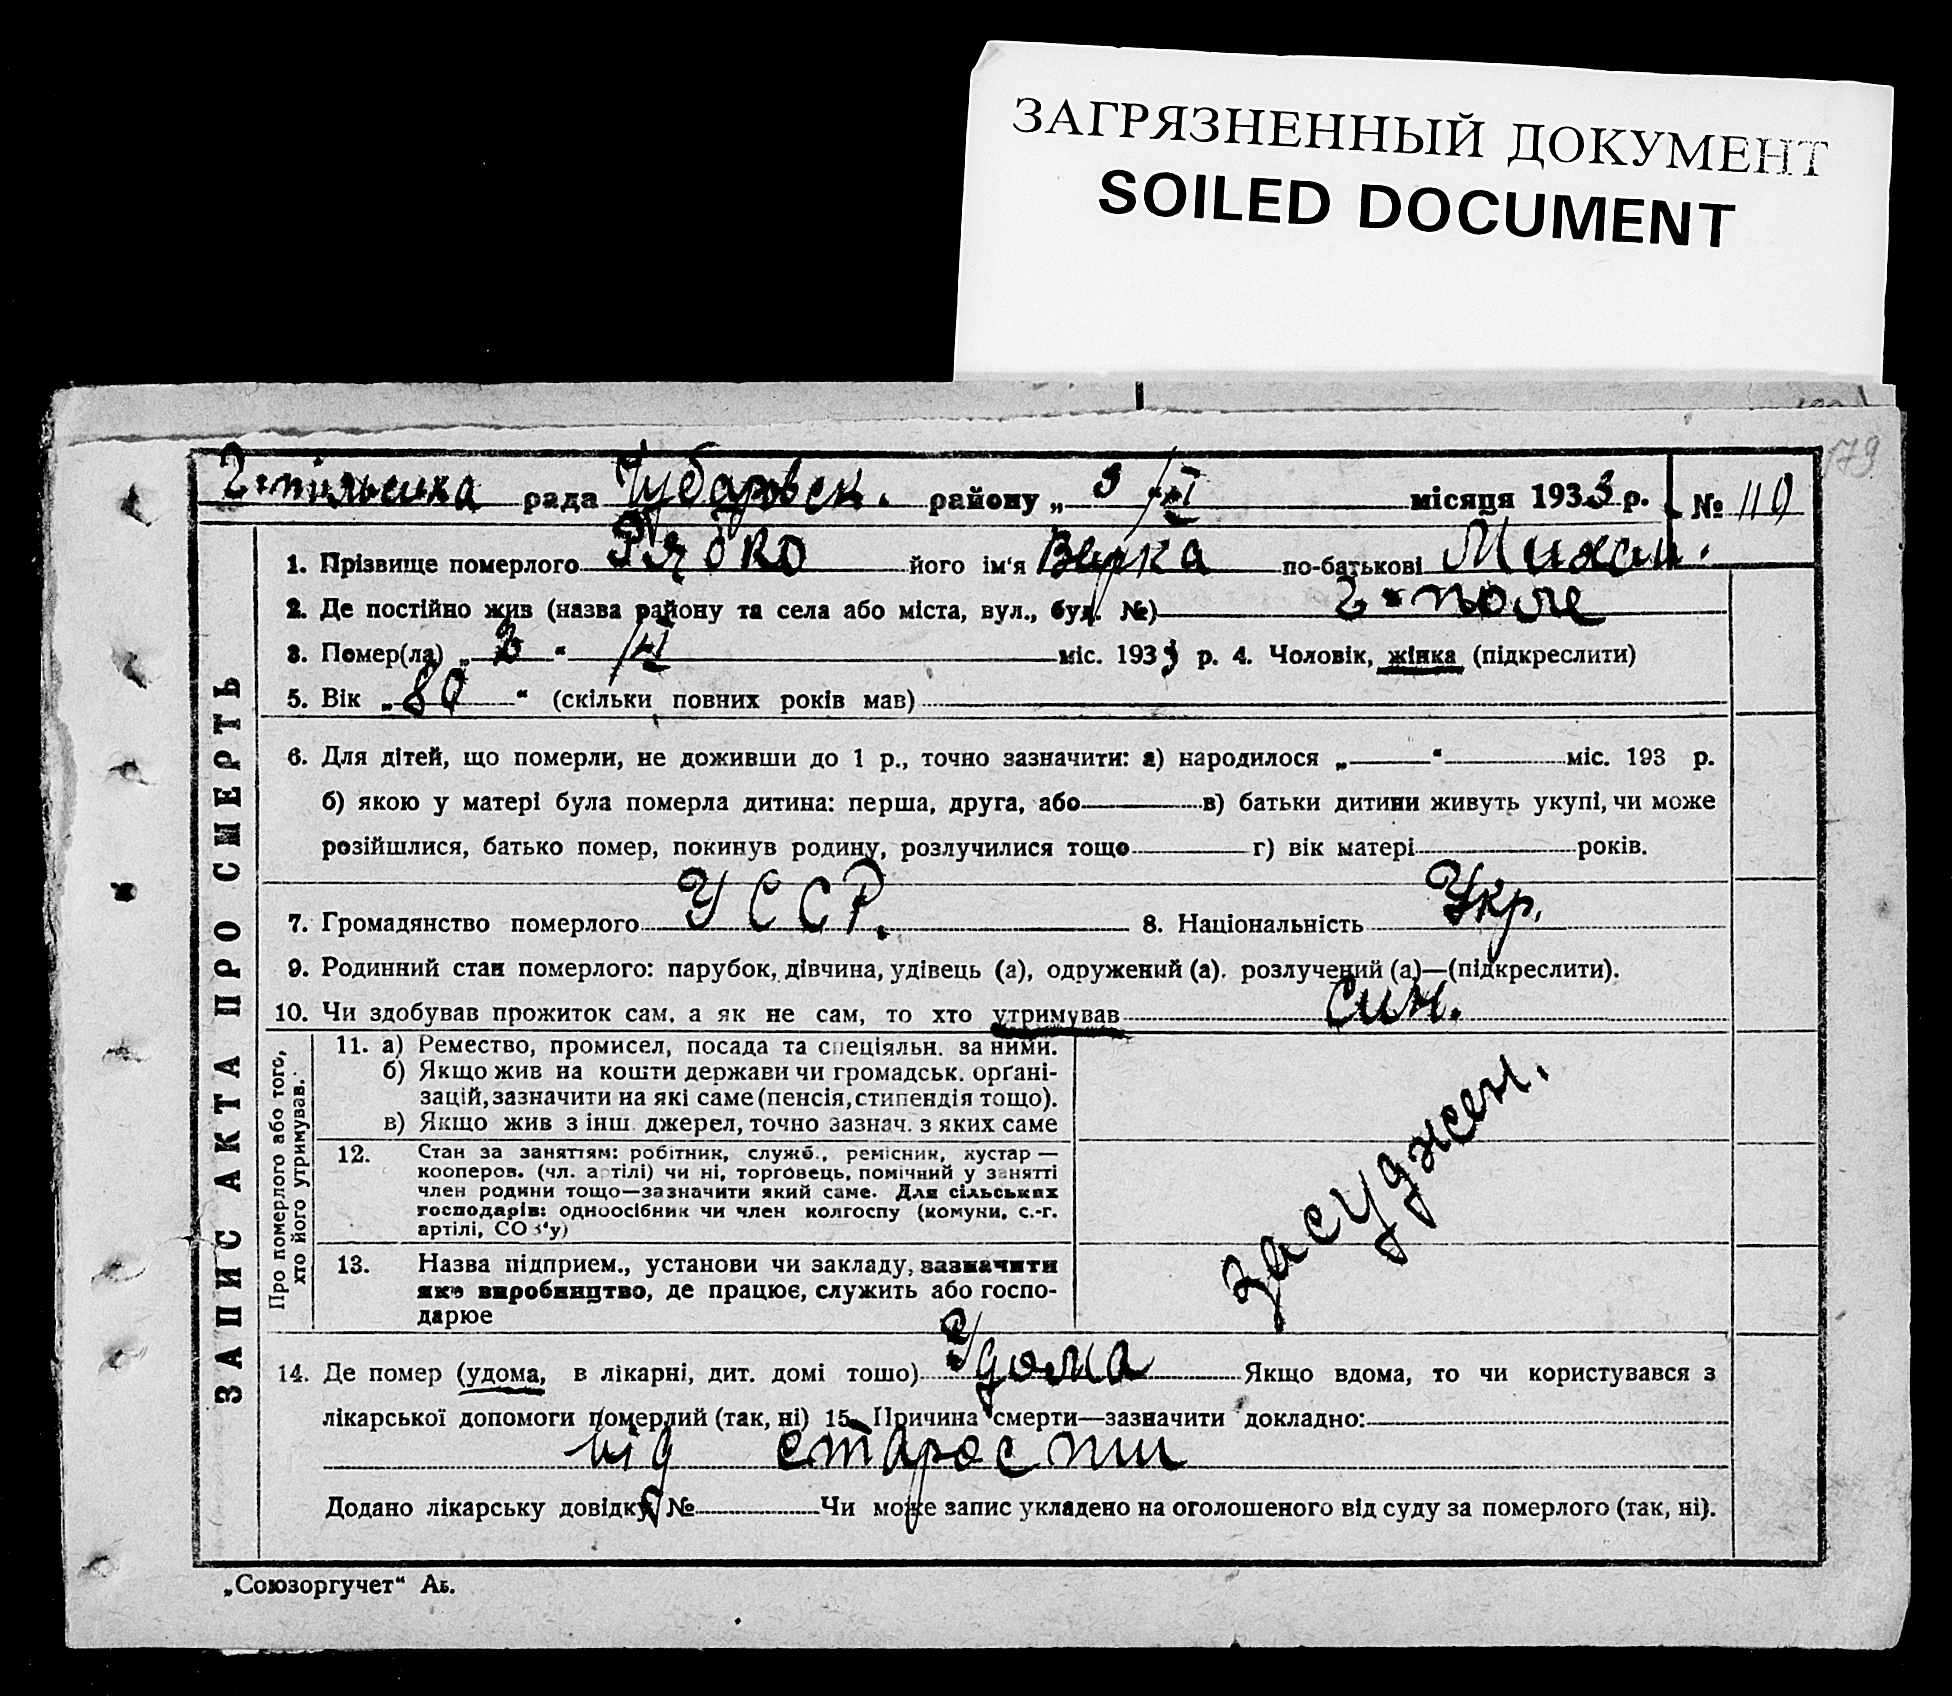 ЗАГРЯЗНЕННЫЙ ДОКУМЕНТ
SOILED DOCUMENT
179
Г-пільська рада Чубарівськ. району „ 3 /VI місяця 1933 р. № 110
ЗАПИС АКТА ПРО СМЕРТЬ
1. Прізвище померлого Рябко його ім'я Вірка по-батькові Михай.
2. Де постійно жив (назва району та села або міста, вул., буд. №) Г-поле
3. Помер(ла) „ 3 “ /VI міс. 1933 р. 4. Чоловік, жінка (підкреслити)
5. Вік „ 80 “ (скільки повних років мав)
6. Для дітей, що померли, не доживши до 1 р., точно зазначити: а) народилося „ “ міс. 193 р.
б) якою у матері була померла дитина: перша, друга, або в) батьки дитини живуть укупі, чи може
розійшлися, батько помер, покинув родину, розлучилися тощо г) вік матері років.
7. Громадянство померлого УССР. 8. Національність Укр.
9. Родинний стан померлого: парубок, дівчина, удівець (а), одружений (а). розлучений (а)—(підкреслити).
10. Чи здобував прожиток сам, а як не сам, то хто утримував син.
Про померлого або того,
хто його утримував.
11. а) Ремество, промисел, посада та спеціяльн. за ними.
б) Якщо жив на кошти держави чи громадськ. орґані-
зацій, зазначити на які саме (пенсія, стипендія тощо).
в) Якщо жив з інш. джерел, точно зазнач. з яких саме
12. Стан за заняттям: робітник, служб., ремісник, кустар —
кооперов. (чл. артілі) чи ні, торговець, помічний у занятті
член родини тощо—зазначити який саме. Для сільських
господарів: одноосібник чи член колгоспу (комуни, с.-г.
артілі, СОЗ'у)
13. Назва підприєм., установи чи закладу, зазначити
яке виробництво, де працює, служить або госпо-
дарює
засуджен.
14. Де помер (удома, в лікарні, дит. домі тошо) Удома Якщо вдома, то чи користувався з
лікарської допомоги померлий (так, ні) 15. Причина смерти—зазначити докладно:
від старости
Додано лікарську довідку № Чи може запис укладено на оголошеного від суду за померлого (так, ні).
„Союзоргучет“ Аб.